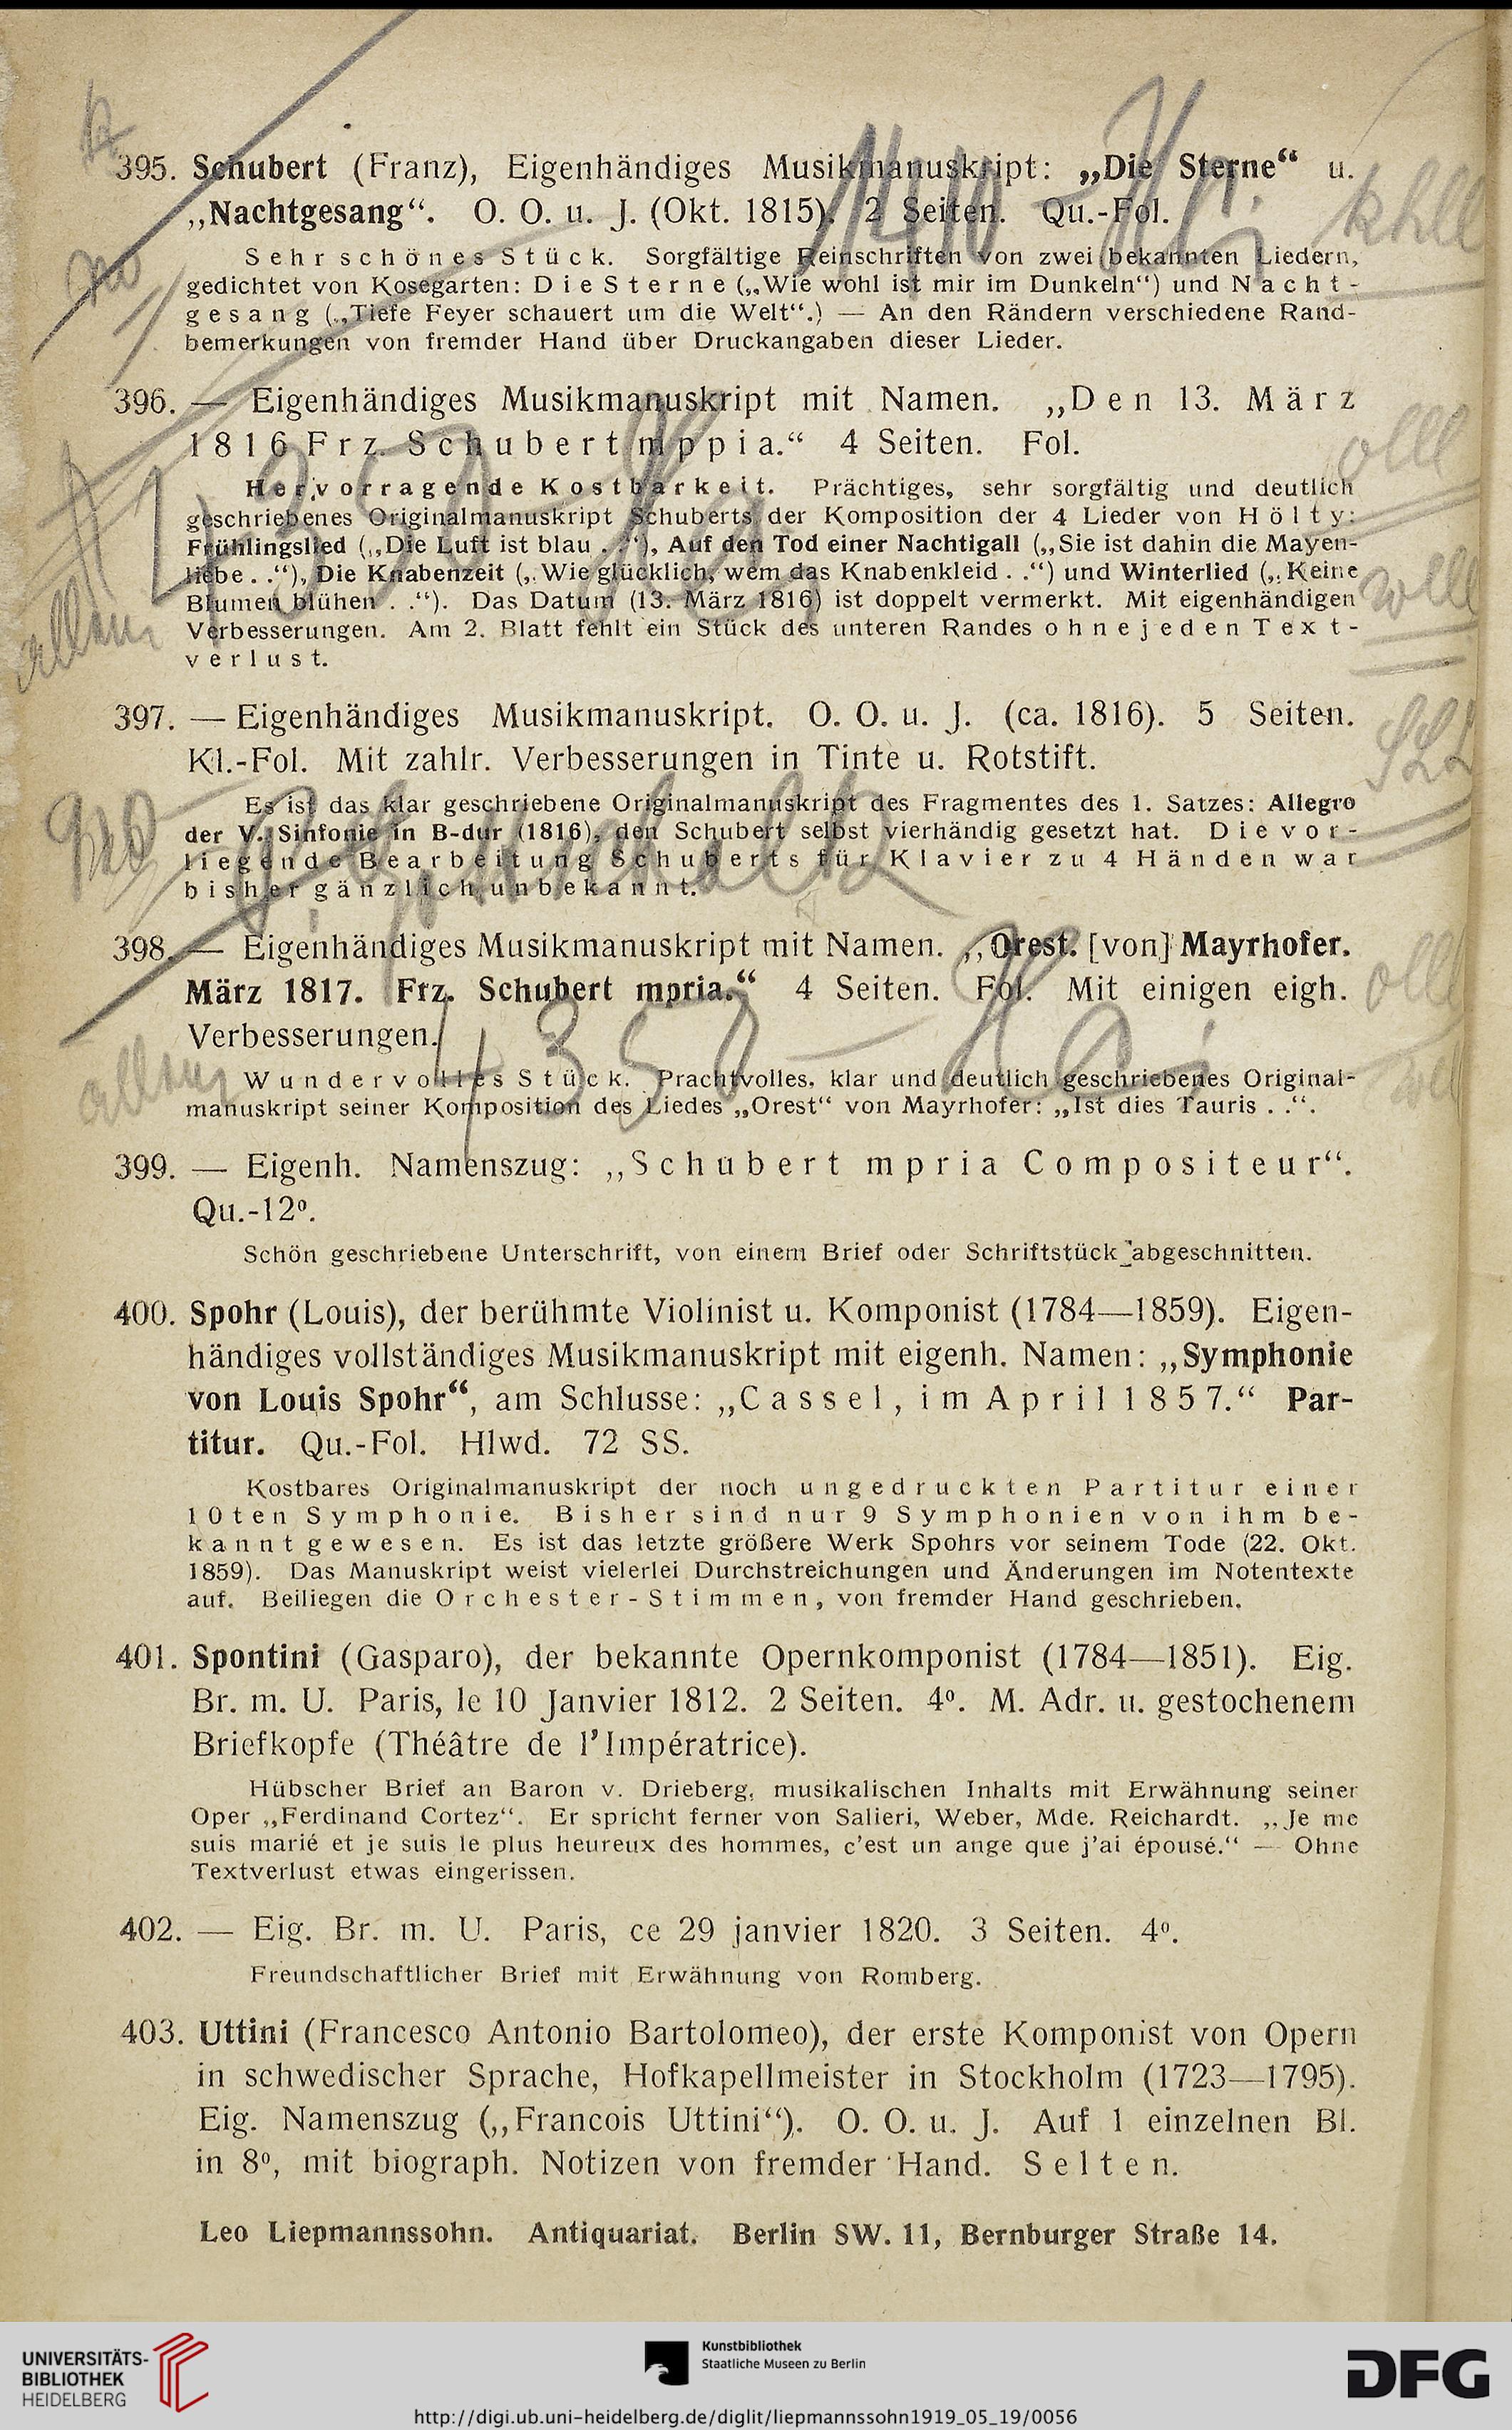 395. Schubert (Franz), Eigenhändiges Musikmanuskript: „Die Sterne“ u.
„Nachtgesang“. O. O. u. J. (Okt. 1815). 2 Seiten. Qu.-Fol.
Sehr schönes Stück. Sorgfältige Reinschriften von zwei bekannten Liedern,
gedichtet von Kosegarten: Die Sterne („Wie wohl ist mir im Dunkeln“) und Nacht-
gesang („Tiefe Feyer schauert um die Welt“.) — An den Rändern verschiedene Rand-
bemerkungen von fremder Hand über Druckangaben dieser Lieder.
396. — Eigenhändiges Musikmanuskript mit Namen. „Den 13. März
1816 Frz. Schubert mppia.“ 4 Seiten. Fol.
Hervorragende Kostbarkeit. Prächtiges, sehr sorgfältig und deutlich
geschriebenes Originalmanuskript Schuberts der Komposition der 4 Lieder von Hölty:
Frühlingslied („Die Luft ist blau . .“), Auf den Tod einer Nachtigall („Sie ist dahin die Mayen-
liebe . .“), Die Knabenzeit („Wie glücklich, wem das Knabenkleid . .“) und Winterlied („Keine
Blumen blühen . .“). Das Datum (13. März 1816) ist doppelt vermerkt. Mit eigenhändigen
Verbesserungen. Am 2. Blatt fehlt ein Stück des unteren Randes ohne jeden Text-
verlust.
397. — Eigenhändiges Musikmanuskript. O. O. u. J. (ca. 1816). 5 Seiten.
Kl.-Fol. Mit zahlr. Verbesserungen in Tinte u. Rotstift.
Es ist das klar geschriebene Originalmanuskript des Fragmentes des 1. Satzes: Allegro
der V. Sinfonie in B-dur (1816), den Schubert selbst vierhändig gesetzt hat. Die vor-
liegende Bearbeitung Schuberts für Klavier zu 4 Händen war
bisher gänzlich unbekannt.
398. — Eigenhändiges Musikmanuskript mit Namen. „Orest. [von] Mayrhofer.
März 1817. Frz. Schubert mpria.“ 4 Seiten. Fol. Mit einigen eigh.
Verbesserungen.
Wundervolles Stück. Prachtvolles, klar und deutlich geschriebenes Original-
manuskript seiner Komposition des Liedes „Orest“ von Mayrhofer: „Ist dies Tauris . .“.
399. — Eigenh. Namenszug: „Schubert mpria Compositeur“.
Qu.-12⁰.
Schön geschriebene Unterschrift, von einem Brief oder Schriftstück abgeschnitten.
400. Spohr (Louis), der berühmte Violinist u. Komponist (1784—1859). Eigen-
händiges vollständiges Musikmanuskript mit eigenh. Namen: „Symphonie
von Louis Spohr“, am Schlusse: „Cassel, im April 1857.“ Par-
titur. Qu.-Fol. Hlwd. 72 SS.
Kostbares Originalmanuskript der noch ungedruckten Partitur einer
10ten Symphonie. Bisher sind nur 9 Symphonien von ihm be-
kannt gewesen. Es ist das letzte größere Werk Spohrs vor seinem Tode (22. Okt.
1859). Das Manuskript weist vielerlei Durchstreichungen und Änderungen im Notentexte
auf. Beiliegen die Orchester-Stimmen, von fremder Hand geschrieben.
401. Spontini (Gasparo), der bekannte Opernkomponist (1784—1851). Eig.
Br. m. U. Paris, le 10 Janvier 1812. 2 Seiten. 4⁰. M. Adr. u. gestochenem
Briefkopfe (Théâtre de l'Impératrice).
Hübscher Brief an Baron v. Drieberg, musikalischen Inhalts mit Erwähnung seiner
Oper „Ferdinand Cortez“. Er spricht ferner von Salieri, Weber, Mde. Reichardt. „Je me
suis marié et je suis le plus heureux des hommes, c'est un ange que j'ai épousé.“ — Ohne
Textverlust etwas eingerissen.
402. — Eig. Br. m. U. Paris, ce 29 janvier 1820. 3 Seiten. 4⁰.
Freundschaftlicher Brief mit Erwähnung von Romberg.
403. Uttini (Francesco Antonio Bartolomeo), der erste Komponist von Opern
in schwedischer Sprache, Hofkapellmeister in Stockholm (1723—1795).
Eig. Namenszug („Francois Uttini“). O. O. u. J. Auf 1 einzelnen Bl.
in 8⁰, mit biograph. Notizen von fremder Hand. Selten.
Leo Liepmannssohn. Antiquariat. Berlin SW. 11, Bernburger Straße 14.
UNIVERSITÄTS-
BIBLIOTHEK
HEIDELBERG
Kunstbibliothek
Staatliche Museen zu Berlin
DFG
http://digi.ub.uni-heidelberg.de/diglit/liepmannssohn1919_05_19/0056